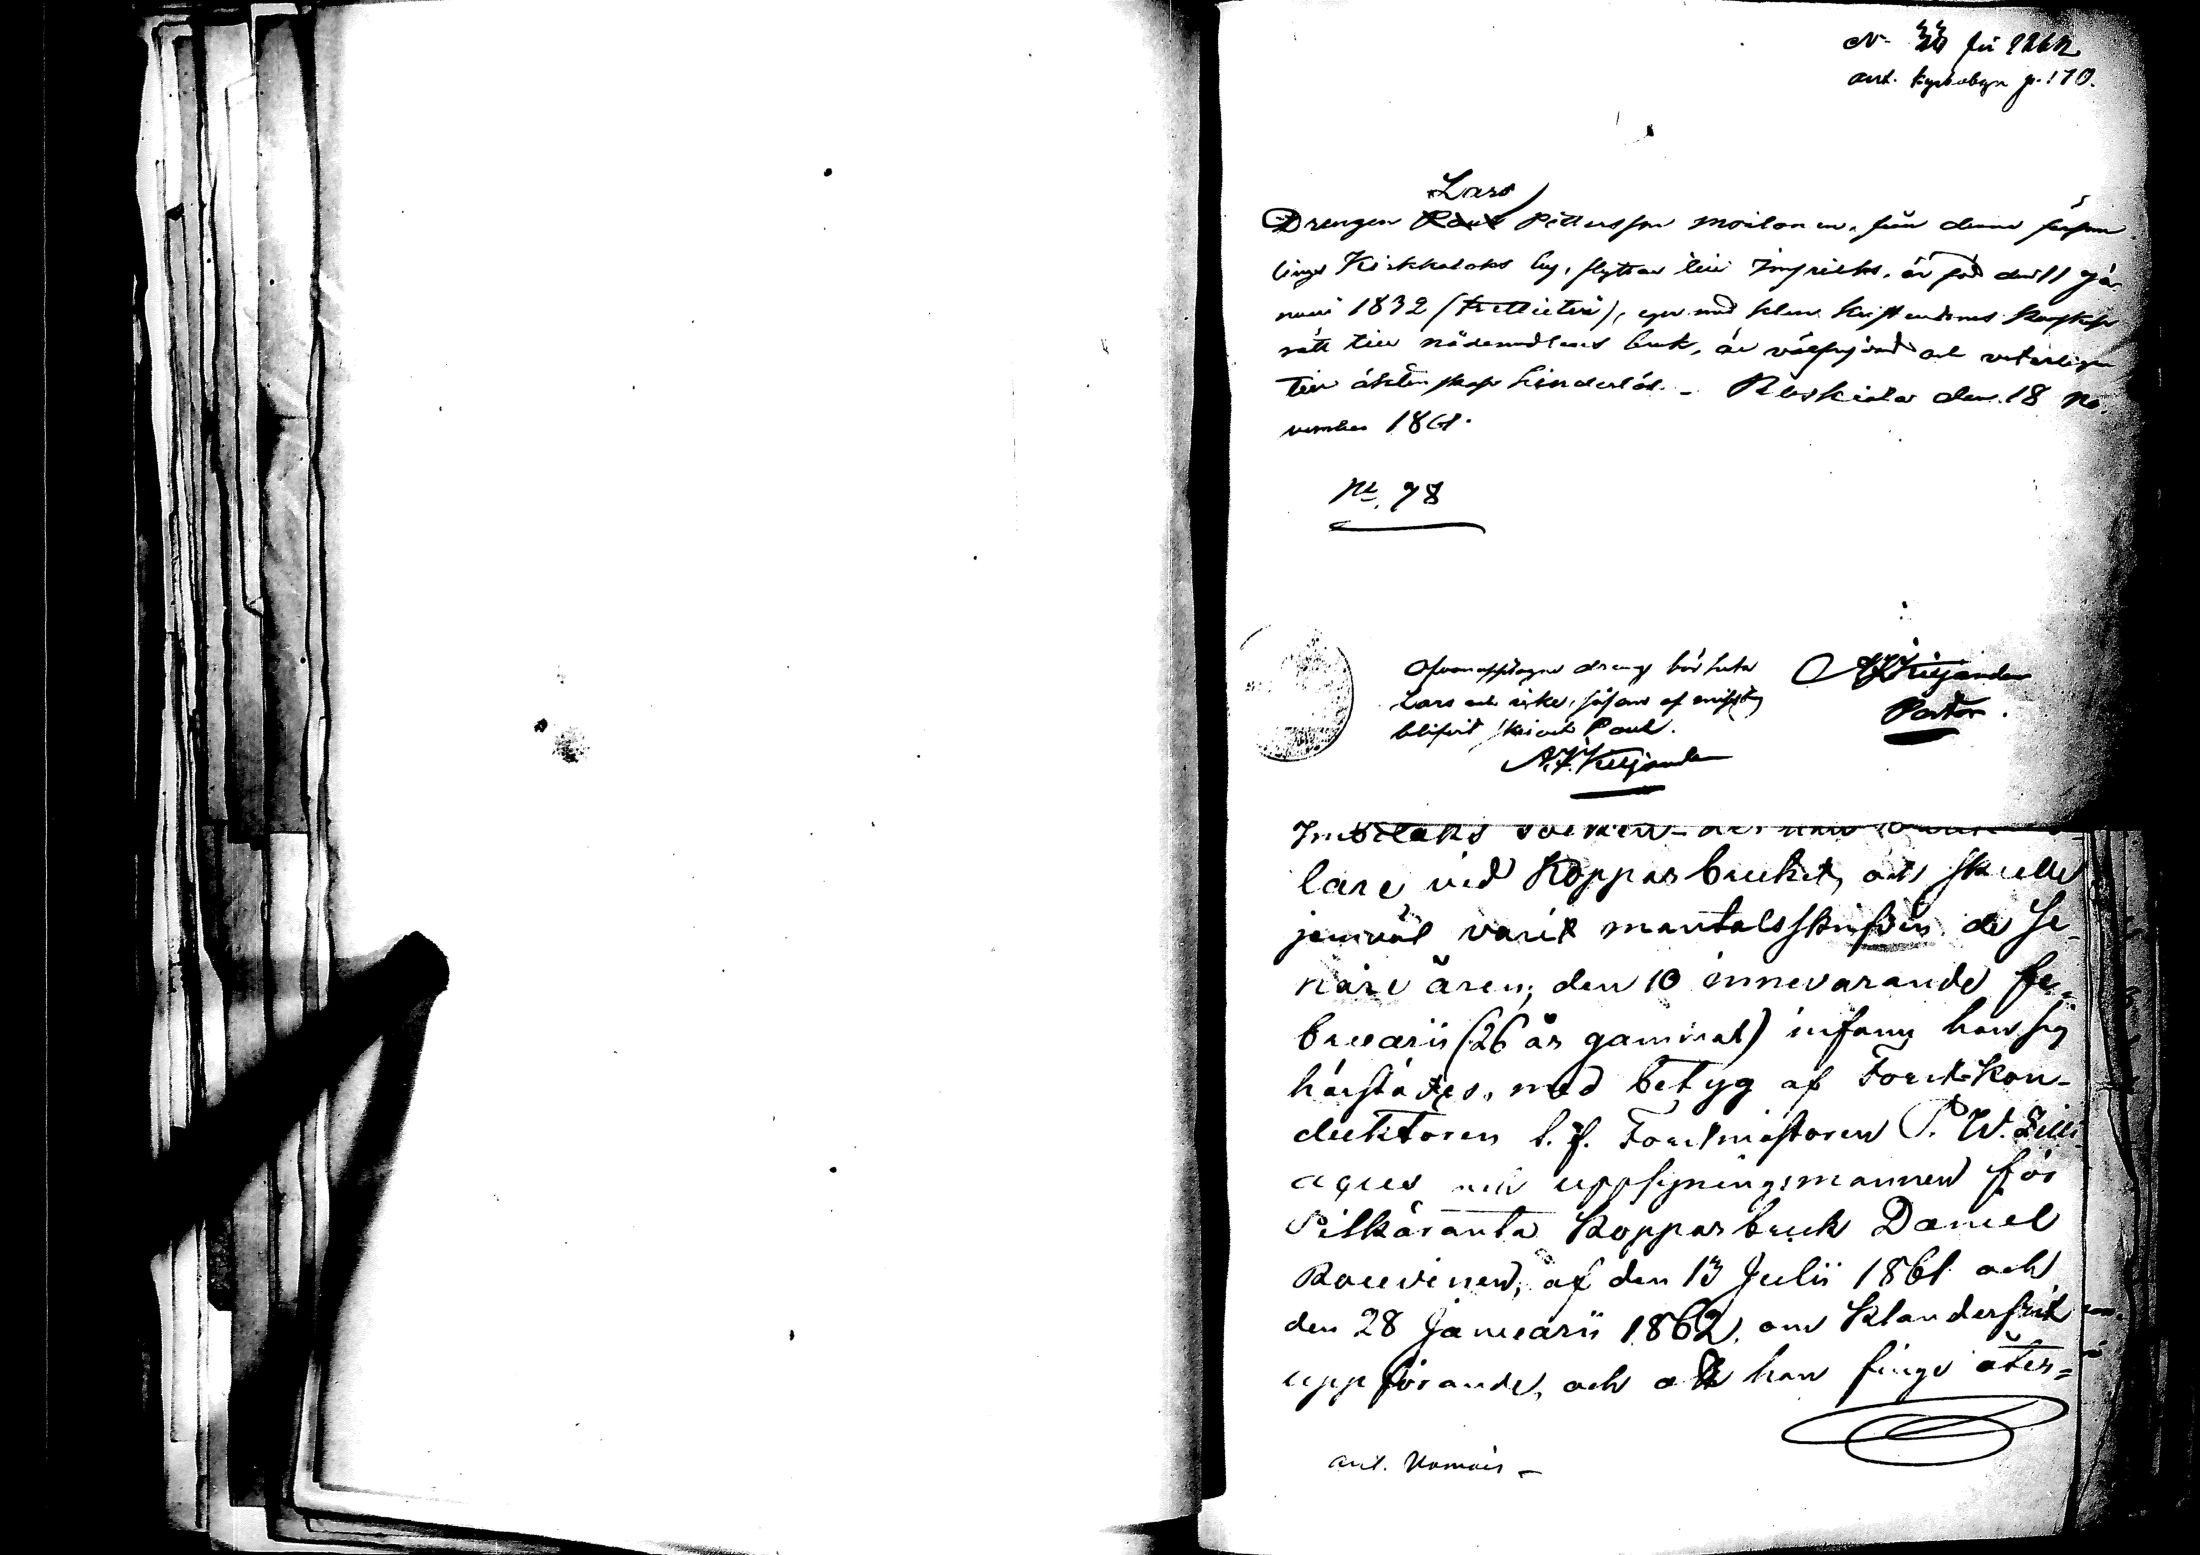 N. för 1862
ant. kyrkobyn p. 170.
Lars
Drengen Paul Pettersson Moilanen, från denne försam
lings Kirkkalaks by, flyttar till Impilaks, är född den 11 Ja-
nuari 1832 (trettietvå), eger med klen kristendoms kunskap
rätt till nådemedlens bruk, är välfrejdad och veterligen
till äktenskap hinderlös. - Ruskiala den 18 No-
vember 1861.
No. 78
Ofvanupptagne dreng bör heta
Lars och icke, såsom af misstag
blifvit skrivet Paul.
A. J. Kiljander
A J Kiljander
Pastor.
Imbilaks socken
lare vid Kopparbruket, och skulle
jemväl varit mantalsskrifven de se-
nare åren; den 10 innevarande fe-
bruarii (26 år gammal) infann han sig
härstädes, med betyg af Forstkon-
duktoren t. f. Forstmästaren P. W.
acus och uppsyningsmannen för
Pitkäranta Kopparbruk Daniel
Rouvinen, af den 13 Julii 1861 och
den 28 Januarii 1862, om klanderfritt
uppförande, och att han finge åter-
ant.